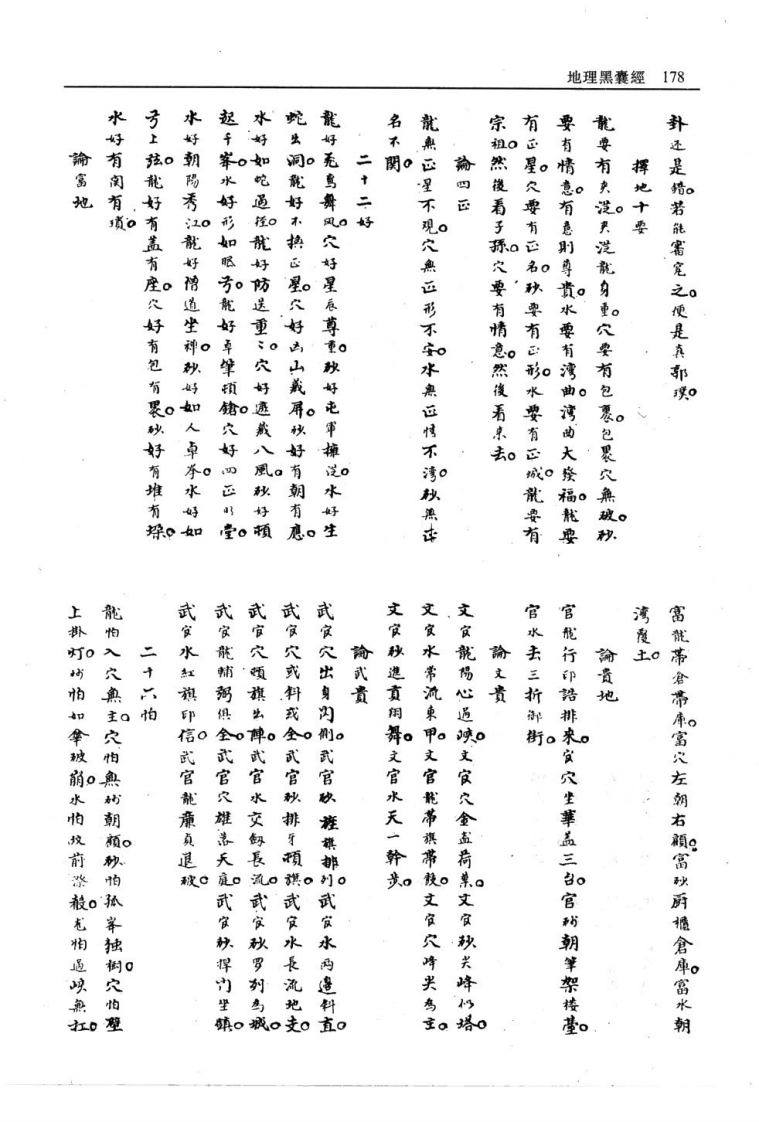 地理黑囊經 178
卦还是錯。若能審究之。便是真郭璞。
擇地十要
龍要有夾從。夾從龍身重。穴要有包裹。包裹穴無破。砂
要有情意。有意則尊貴。水要有湾曲。湾曲大發福。龍要
有正星。穴要有正名。砂要有正形。水要有正城。龍要有
宗祖。然後看子孫。穴要有情意。然後看來去。
論四正
龍無正星不現。穴無正形不安。水無正情不湾。砂無
名不開。
二十二好
龍好飛鳥舞风。穴好星辰尊重。砂好屯軍擁從。水好生
蛇出洞。龍好不換正星。穴好山義屏。砂好有朝有應。
水好如蛇過径。龍好防送重重。穴好遮藏八風。砂好頓
起千峯。水好形如眠弓。龍好卓筆頓鎗。穴好四正明堂。
水好朝陽秀江。龍好僧道坐禅。砂好如人卓拳。水好如
弓上弦。龍好有盖有座。穴好有包有裹。砂好有堆有垛。
水好有関有瑣。
論富地
富龍帯倉帯庫。富穴左朝右顧。富砂厨櫃倉庫。富水朝
湾覆土。
論貴地
官龍行印誥排来。官穴坐華盖三台。官砂朝筆架楼臺。
官水去三折御街。
論文貴
文官龍陽心過峡。文官穴金盆荷葉。文官砂尖峰似塔。
文官水常流東甲。文官龍帯旗帯鼓。文官穴峰尖為主。
文官砂進貢開舞。文官水天一幹步。
論武貴
武官穴出身閃側。武官砂旌旗排列。武官水両邊斜直。
武官穴或斜或全。武官砂排牙頓旗。武官水長流地支。
武官穴頓旗出陣。武官水交劍長流。武官砂罗列為城。
武官龍輔弼俱全。武官穴雄落天庭。武官砂捍门坐鎮。
武官水紅旗印信。武官龍廉貞退破。
二十六怕
龍怕入穴無主。穴怕無砂朝顧。砂怕孤峯独樹。穴怕壁
上掛灯。砂怕如傘破崩。水怕坟前殺。龙怕過峡無扛。